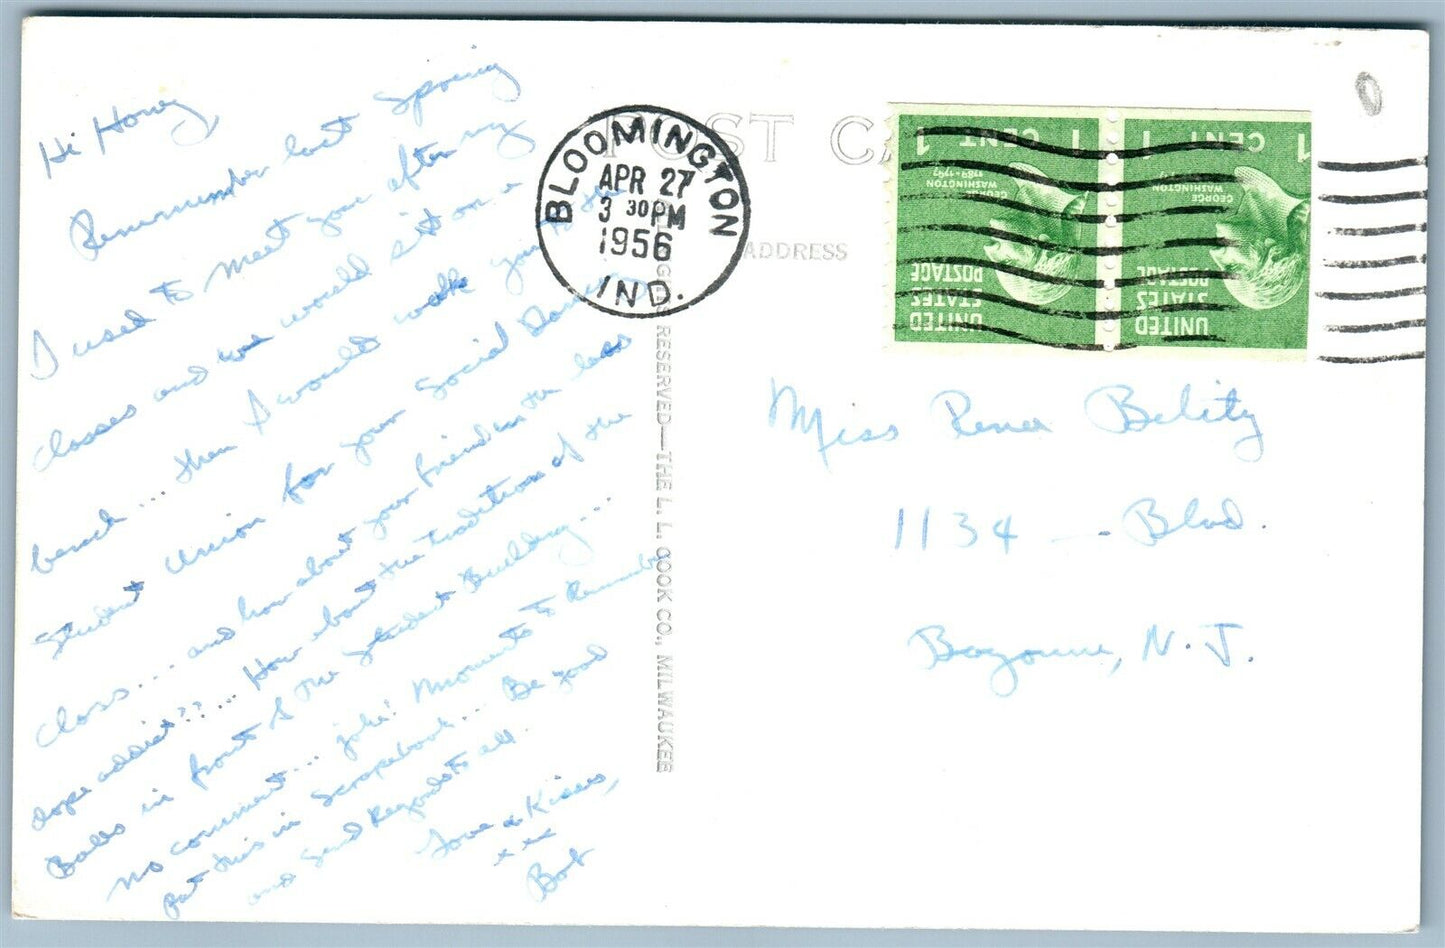 Hi Honey,
Remember last Spring
I used to meet you after my
classes and we would sit on a
bench ... then I would walk you to the
Student Union for your Social Dancing
class ... and how about your friend in the class
dope addict?? .... How about the tradition of the
Balls in front of the Student Building ...
no comment ... joke! Moments to Remember
put this in Scrapebook ... Be good
and send Regards to all.
Love & Kisses,
x x x
Bob
POST CA
ADDRESS
BLOOMINGTON
APR 27
3 30 PM
1956
IND.
RESERVED—THE L. L. COOK CO., MILWAUKEE
1 CENT 1
GEORGE
WASHINGTON
1789-1797
UNITED
STATES
POSTAGE
1 CENT 1
GEORGE
WASHINGTON
UNITED
STATES
POSTAGE
Miss Rena Belitz
1134 — Blvd.
Bayonne, N. J.